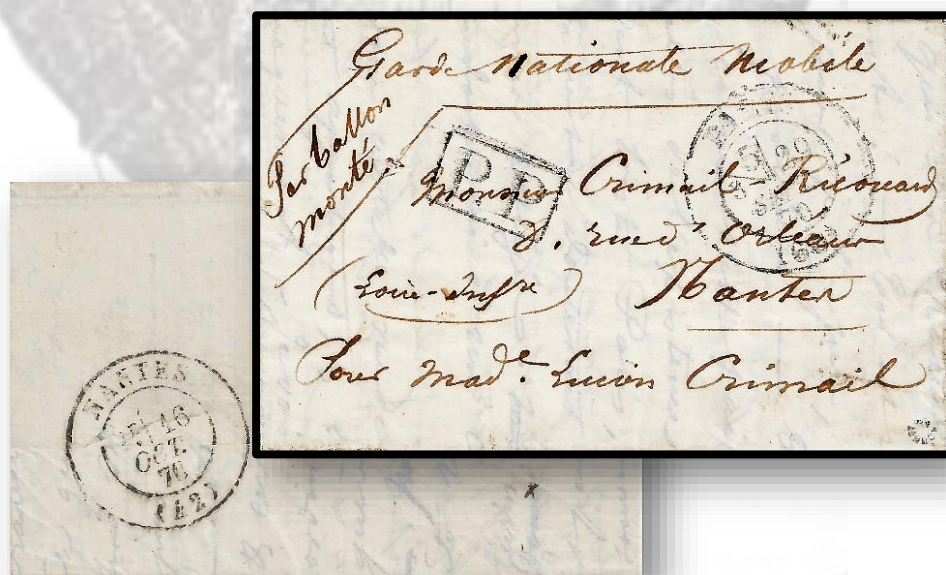 Garde Nationale Mobile
Par ballon
monté
P.P.
PARIS
29
SEPT.
70
(60)
Monsieur Crimail Ricouard
2. rue d'Orléans
(Loire-Infre) Nantes
Pour Made. Lucien Crimail
NANTES
16
OCT.
70
(42)